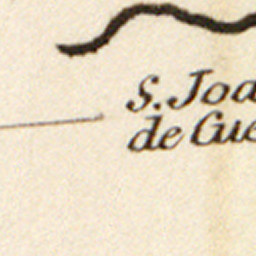 S. Joa
de Gue